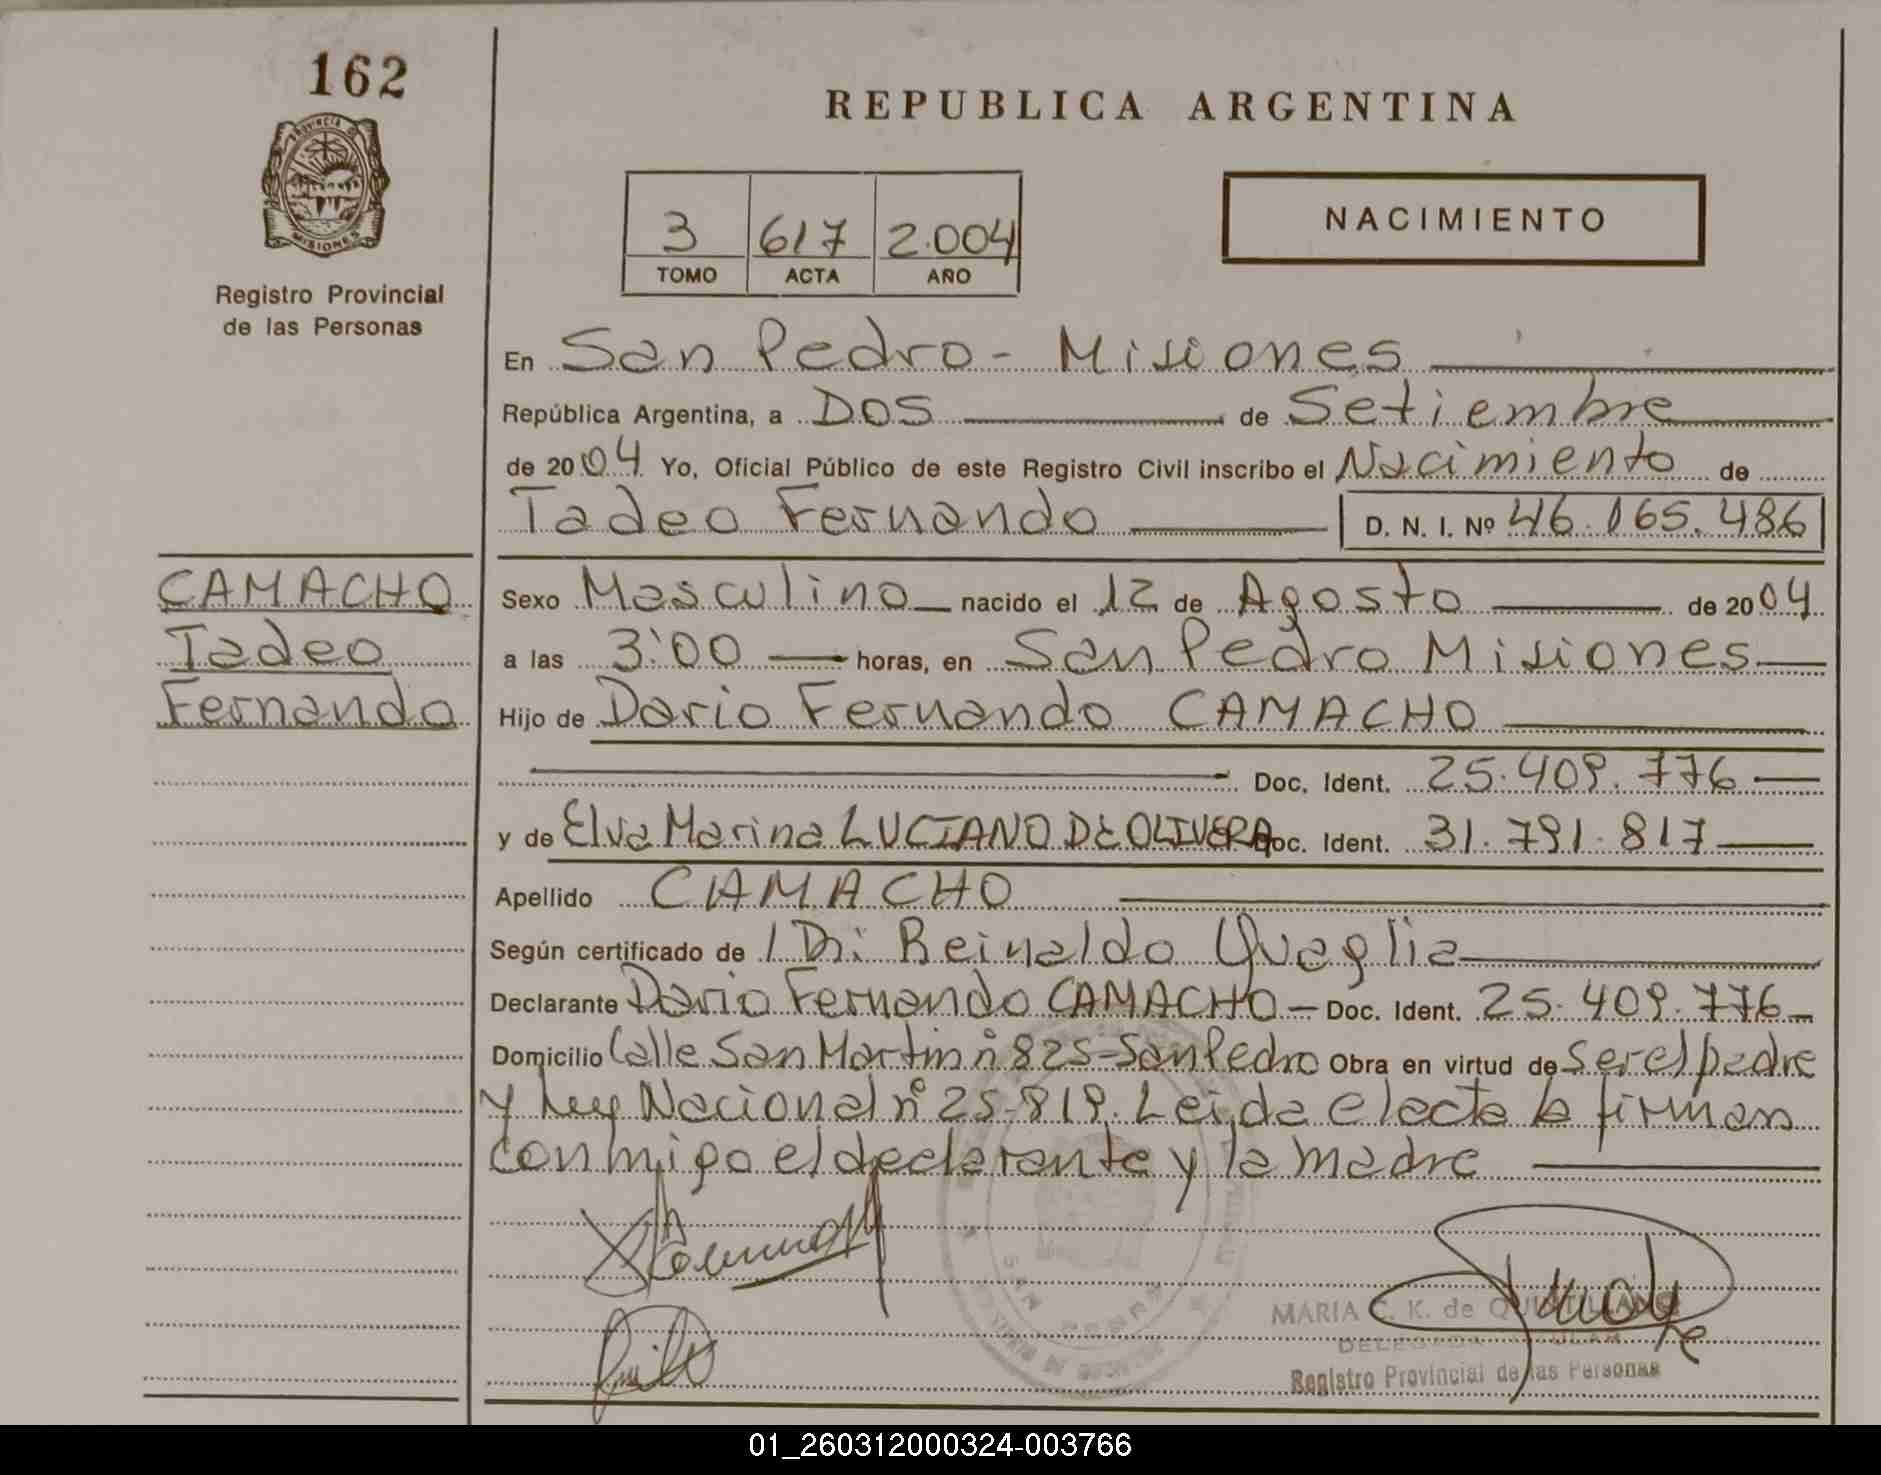 162
PROVINCIA DE
MISIONES
Registro Provincial
de las Personas
REPUBLICA ARGENTINA
3 617 2.004
TOMO ACTA AÑO
NACIMIENTO
En San Pedro - Misiones
República Argentina, a DOS de Setiembre
de 2004 Yo, Oficial Público de este Registro Civil inscribo el Nacimiento de
Tadeo Fernando D. N. I. Nº 46.165.486
CAMACHO
Tadeo
Fernando
Sexo Masculino nacido el 12 de Agosto de 2004
a las 3:00 horas, en San Pedro Misiones
Hijo de Dario Fernando CAMACHO
Doc. Ident. 25.409.776
y de Elva Marina LUCIANO DE OLIVERA Doc. Ident. 31.791.817
Apellido CAMACHO
Según certificado de Dr: Reinaldo Quaglia
Declarante Dario Fernando CAMACHO - Doc. Ident. 25.409.776
Domicilio Calle San Martin nº 825-San Pedro Obra en virtud de ser el padre
y Ley Nacional nº 25.819. Leida el acta la firman
conmigo el declarante y la madre
SAN PEDRO
MARIA C. K. de QUINTILLANO
DELEGADA TITULAR
Registro Provincial de las Personas
01_260312000324-003766